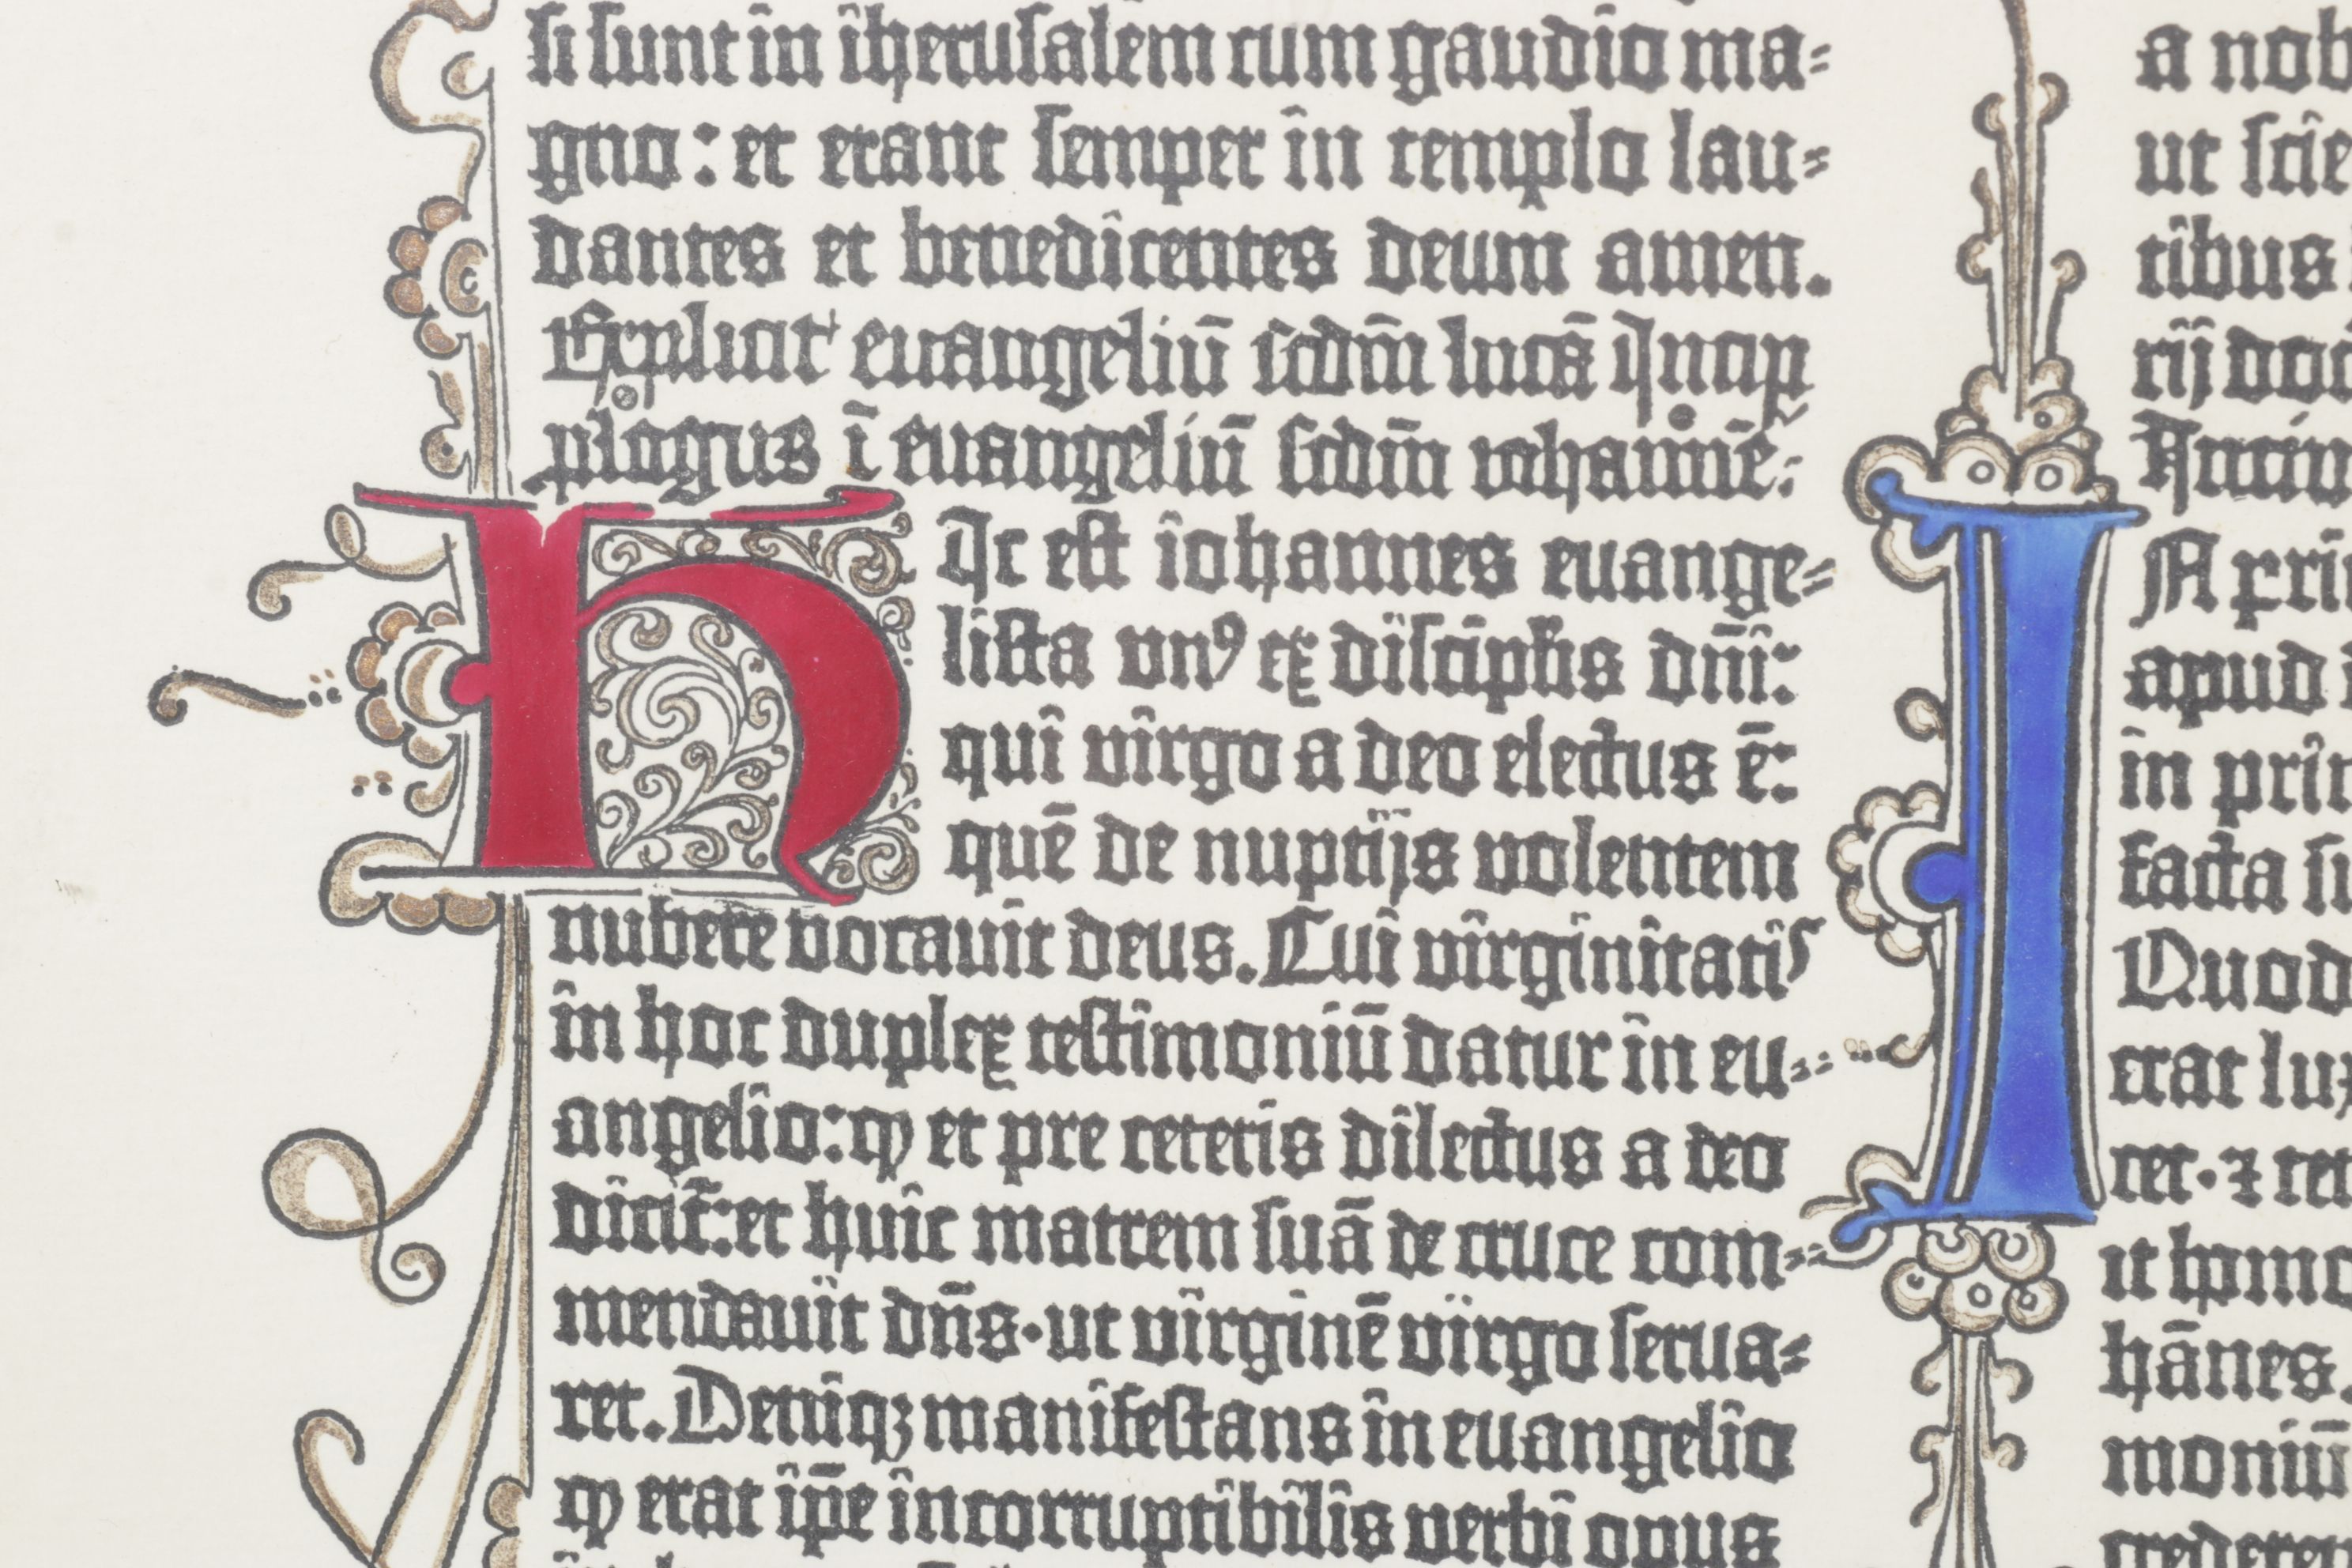 si sunt in iherusalem cum gaudio ma-
gno: et erant semper in templo lau-
dantes et benedicentes deum amen.
Explicit euangeliū scdm̄ lucā Incip
plogus ī euangeliū scdm̄ iohannē:
HIc est iohannes euange-
lista vnꝰ ex discipulis dn̄i:
qui virgo a deo electus ē:
quē de nuptijs volentem
nubere vocauit deus. Cui virginitatis
in hoc duplex testimoniū datur in eu-
angelio: ꝙ et pre ceteris dilectus a deo
dicit᷑: et huic matrem suā de cruce com-
mendauit dn̄s· ut virginē virgo serua-
ret. Deniqꝫ manifestans in euangelio
ꝙ erat ip̄e incorruptibilis verbi opus
a nob
ut scie
tibus
rij
I
apud
in prin
facta
Quod
erat lux
cet· ⁊
it homo
hānes
moniū